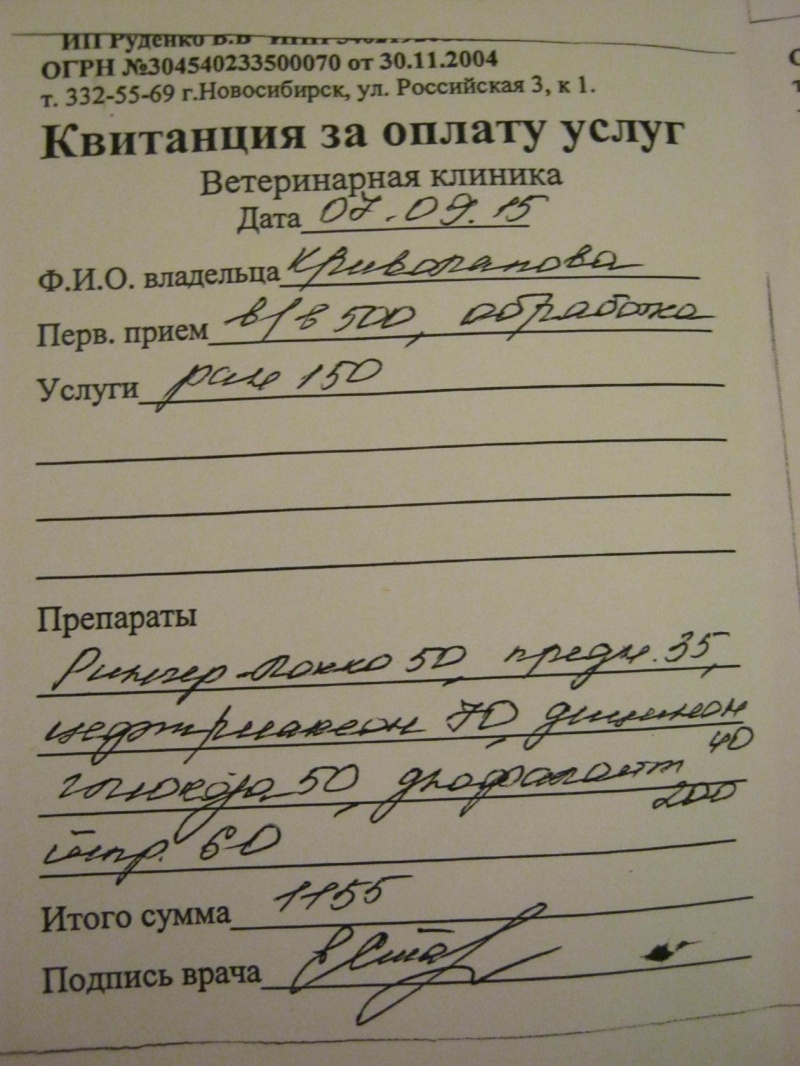 ИП Руденко В.В
ОГРН №304540233500070 от 30.11.2004
т. 332-55-69 г.Новосибирск, ул. Российская 3, к 1.
Квитанция за оплату услуг
Ветеринарная клиника
Дата 07.09.15
Ф.И.О. владельца Криволапова
Перв. прием в/в 500, обработка
Услуги ран 150
Препараты
Рингер-Локко 50, предн. 35,
цефтриаксон 70, дицинон
40
глюкоза 50, дюфалайт
200
шпр. 60
Итого сумма 1155
Подпись врача